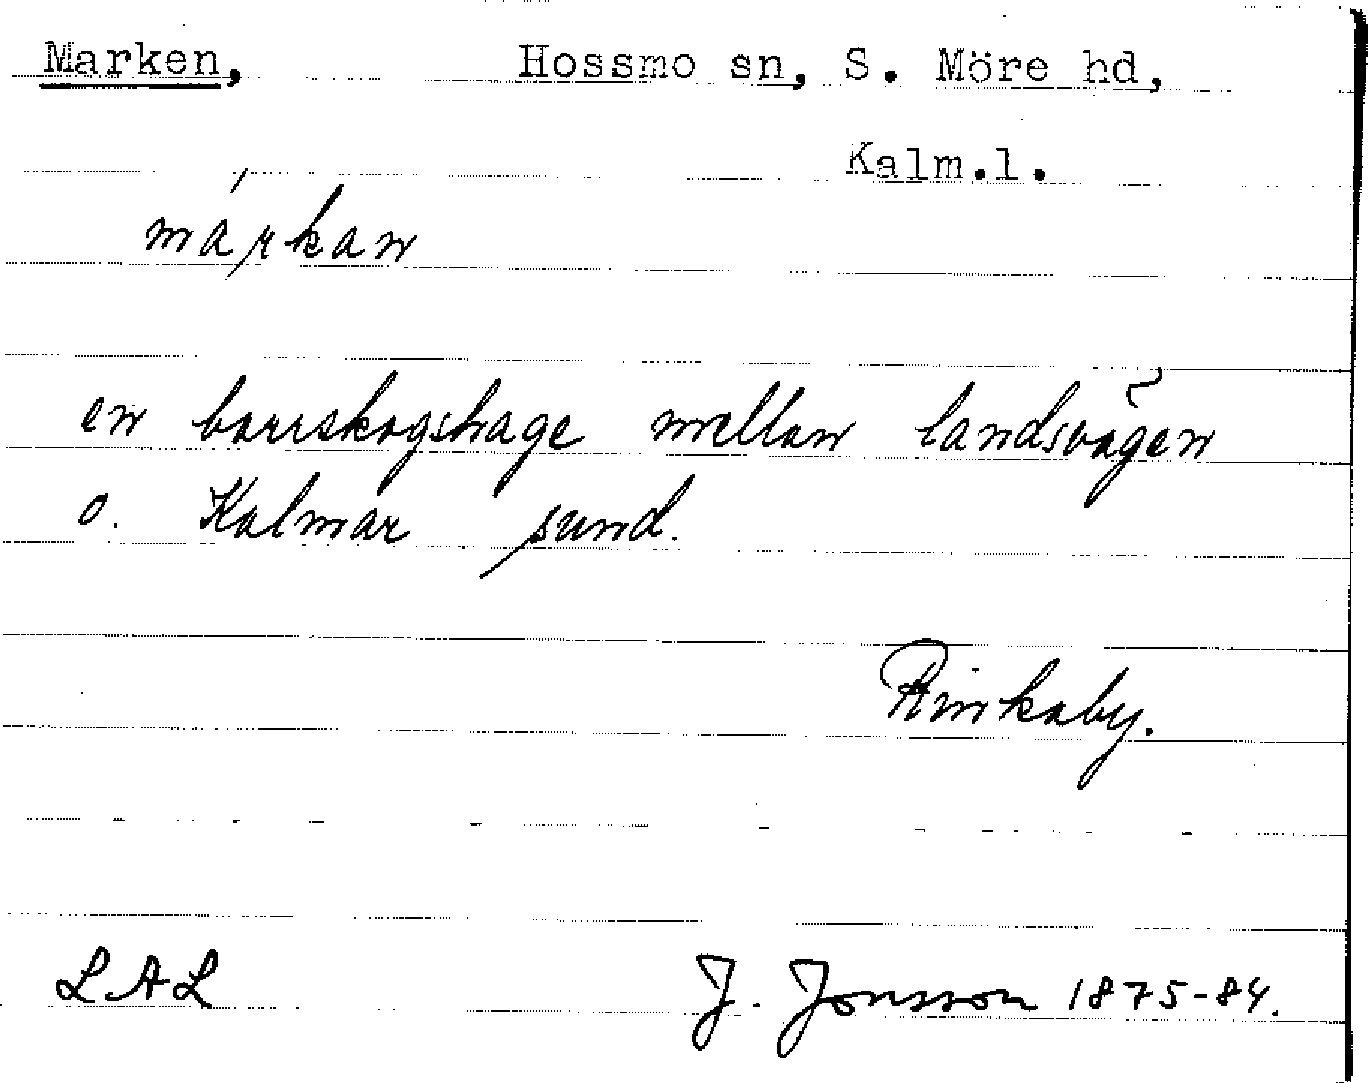 Marken, Hossmo sn, S. Möre hd,
Kalm.l.
márkan
en barrskogshage mellan landsvägen
o. Kalmar sund.
Rinkaby.
LAL J. Jonsson 1875-84.